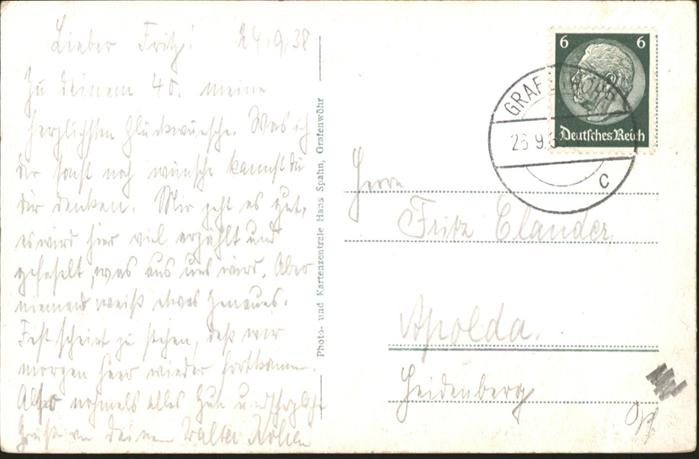 Lieber Fritz! 24.9.38
Zu deinem 40. meine
herzlichsten Glückwünsche. Was ich
dir sonst noch wünsche kannst du
dir denken. Mir geht es gut,
es wird hier viel erzählt und
gefaselt, was aus uns wird. Aber
niemand weiß etwas genaues.
Fest scheint zu stehen, daß wir
morgen hier wieder fortkommen.
Also nochmals alles Gute und herzliche
Grüße von deinem Walter
Photo- und Kartenzentrale Hans Spahn, Grafenwöhr
6 6
Deutsches Reich
GRAFENWÖHR
c
Herrn
Fritz Elander
Apolda.
Heidenberg